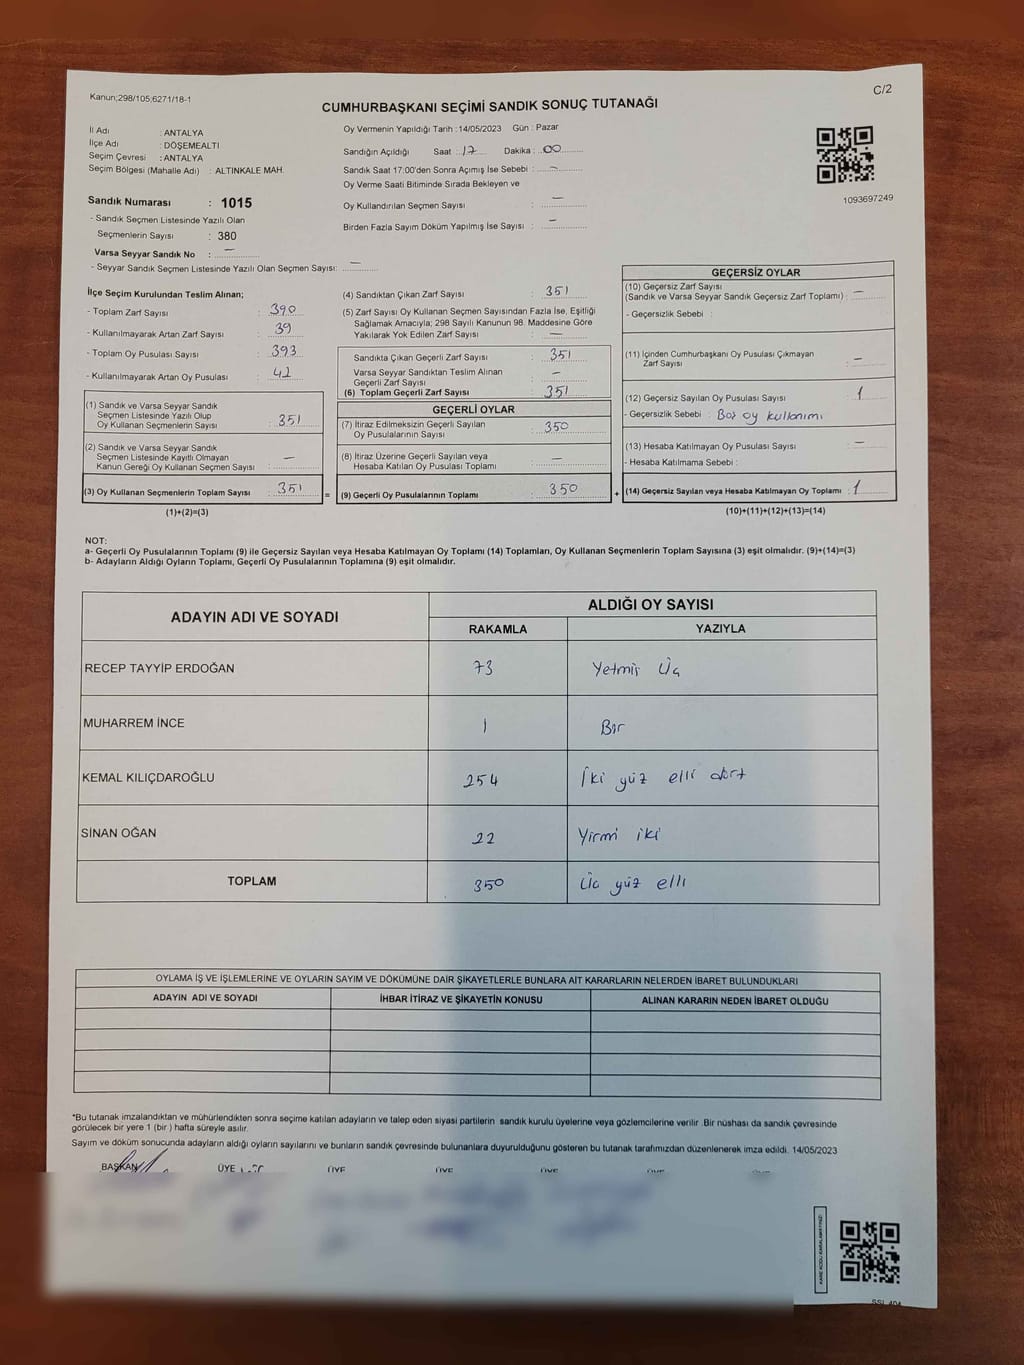 Kanun;298/105;6271/18-1
C/2
CUMHURBAŞKANI SEÇİMİ SANDIK SONUÇ TUTANAĞI
İl Adı : ANTALYA
İlçe Adı : DÖŞEMEALTI
Seçim Çevresi : ANTALYA
Seçim Bölgesi (Mahalle Adı) : ALTINKALE MAH.
Sandık Numarası : 1015
- Sandık Seçmen Listesinde Yazılı Olan
Seçmenlerin Sayısı : 380
Varsa Seyyar Sandık No : —
- Seyyar Sandık Seçmen Listesinde Yazılı Olan Seçmen Sayısı: —
Oy Vermenin Yapıldığı Tarih :14/05/2023 Gün : Pazar
Sandığın Açıldığı Saat : 17 Dakika : 00
Sandık Saat 17:00'den Sonra Açımış İse Sebebi : —
Oy Verme Saati Bitiminde Sırada Bekleyen ve
Oy Kullandırılan Seçmen Sayısı : —
Birden Fazla Sayım Döküm Yapılmış İse Sayısı : —
1093697249
İlçe Seçim Kurulundan Teslim Alınan;
- Toplam Zarf Sayısı : 390
- Kullanılmayarak Artan Zarf Sayısı : 39
- Toplam Oy Pusulası Sayısı : 393
- Kullanılmayarak Artan Oy Pusulası : 42
(1) Sandık ve Varsa Seyyar Sandık
Seçmen Listesinde Yazılı Olup
Oy Kullanan Seçmenlerin Sayısı : 351
(2) Sandık ve Varsa Seyyar Sandık
Seçmen Listesinde Kayıtlı Olmayan
Kanun Gereği Oy Kullanan Seçmen Sayısı : —
(3) Oy Kullanan Seçmenlerin Toplam Sayısı : 351
(1)+(2)=(3)
=
(4) Sandıktan Çıkan Zarf Sayısı : 351
(5) Zarf Sayısı Oy Kullanan Seçmen Sayısından Fazla İse, Eşitliği
Sağlamak Amacıyla; 298 Sayılı Kanunun 98. Maddesine Göre
Yakılarak Yok Edilen Zarf Sayısı : —
Sandıkta Çıkan Geçerli Zarf Sayısı : 351
Varsa Seyyar Sandıktan Teslim Alınan
Geçerli Zarf Sayısı : —
(6) Toplam Geçerli Zarf Sayısı : 351
GEÇERLİ OYLAR
(7) İtiraz Edilmeksizin Geçerli Sayılan
Oy Pusulalarının Sayısı : 350
(8) İtiraz Üzerine Geçerli Sayılan veya
Hesaba Katılan Oy Pusulası Toplamı : —
(9) Geçerli Oy Pusulalarının Toplamı : 350
+
GEÇERSİZ OYLAR
(10) Geçersiz Zarf Sayısı
(Sandık ve Varsa Seyyar Sandık Geçersiz Zarf Toplamı) : —
- Geçersizlik Sebebi :
(11) İçinden Cumhurbaşkanı Oy Pusulası Çıkmayan
Zarf Sayısı : —
(12) Geçersiz Sayılan Oy Pusulası Sayısı : 1
- Geçersizlik Sebebi : Boş oy kullanımı
(13) Hesaba Katılmayan Oy Pusulası Sayısı : —
- Hesaba Katılmama Sebebi :
(14) Geçersiz Sayılan veya Hesaba Katılmayan Oy Toplamı : 1
(10)+(11)+(12)+(13)=(14)
NOT:
a- Geçerli Oy Pusulalarının Toplamı (9) ile Geçersiz Sayılan veya Hesaba Katılmayan Oy Toplamı (14) Toplamları, Oy Kullanan Seçmenlerin Toplam Sayısına (3) eşit olmalıdır. (9)+(14)=(3)
b- Adayların Aldığı Oyların Toplamı, Geçerli Oy Pusulalarının Toplamına (9) eşit olmalıdır.
ADAYIN ADI VE SOYADI
ALDIĞI OY SAYISI
RAKAMLA YAZIYLA
RECEP TAYYİP ERDOĞAN 73 Yetmiş Üç
MUHARREM İNCE 1 Bir
KEMAL KILIÇDAROĞLU 254 İki yüz elli dört
SİNAN OĞAN 22 Yirmi iki
TOPLAM 350 Üç yüz elli
OYLAMA İŞ VE İŞLEMLERİNE VE OYLARIN SAYIM VE DÖKÜMÜNE DAİR ŞİKAYETLERLE BUNLARA AİT KARARLARIN NELERDEN İBARET BULUNDUKLARI
ADAYIN ADI VE SOYADI İHBAR İTİRAZ VE ŞİKAYETİN KONUSU ALINAN KARARIN NEDEN İBARET OLDUĞU
*Bu tutanak imzalandıktan ve mühürlendikten sonra seçime katılan adayların ve talep eden siyasi partilerin sandık kurulu üyelerine veya gözlemcilerine verilir .Bir nüshası da sandık çevresinde
görülecek bir yere 1 (bir ) hafta süreyle asılır.
Sayım ve döküm sonucunda adayların aldığı oyların sayılarını ve bunların sandık çevresinde bulunanlara duyurulduğunu gösteren bu tutanak tarafımızdan düzenlenerek imza edildi. 14/05/2023
BAŞKAN ÜYE ÜYE ÜYE ÜYE